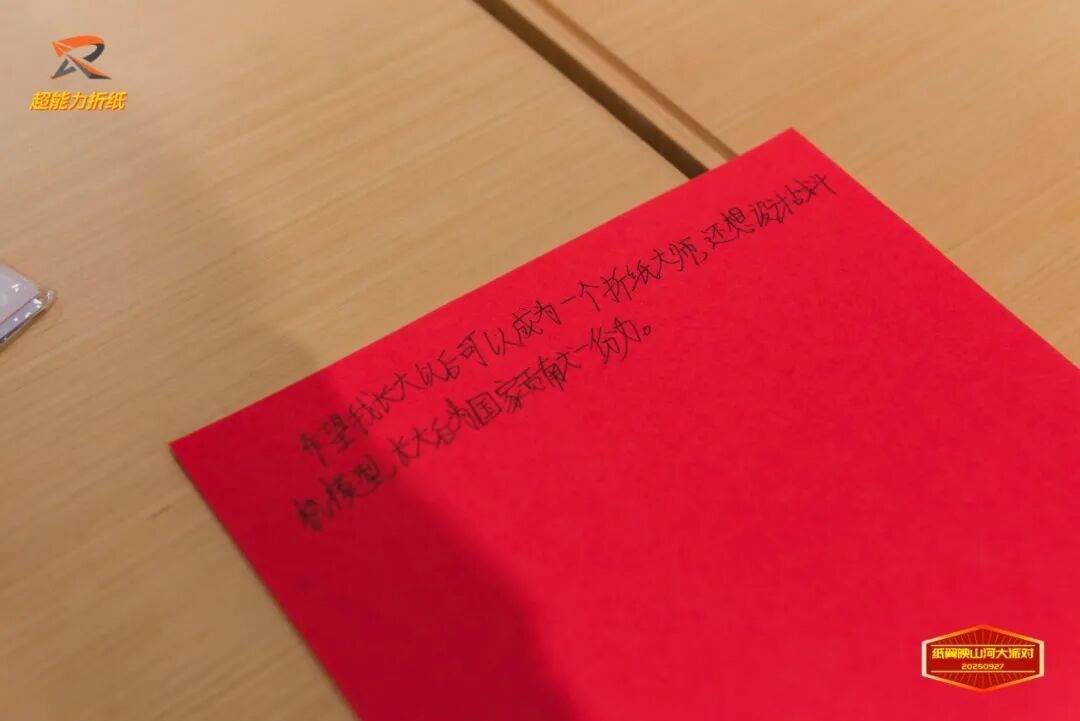 超能力折纸
希望我长大以后可以成为一个折纸大师,还想设计战斗
机模型,长大后为国家贡献一份力。
纸翼映山河大派对
20250927